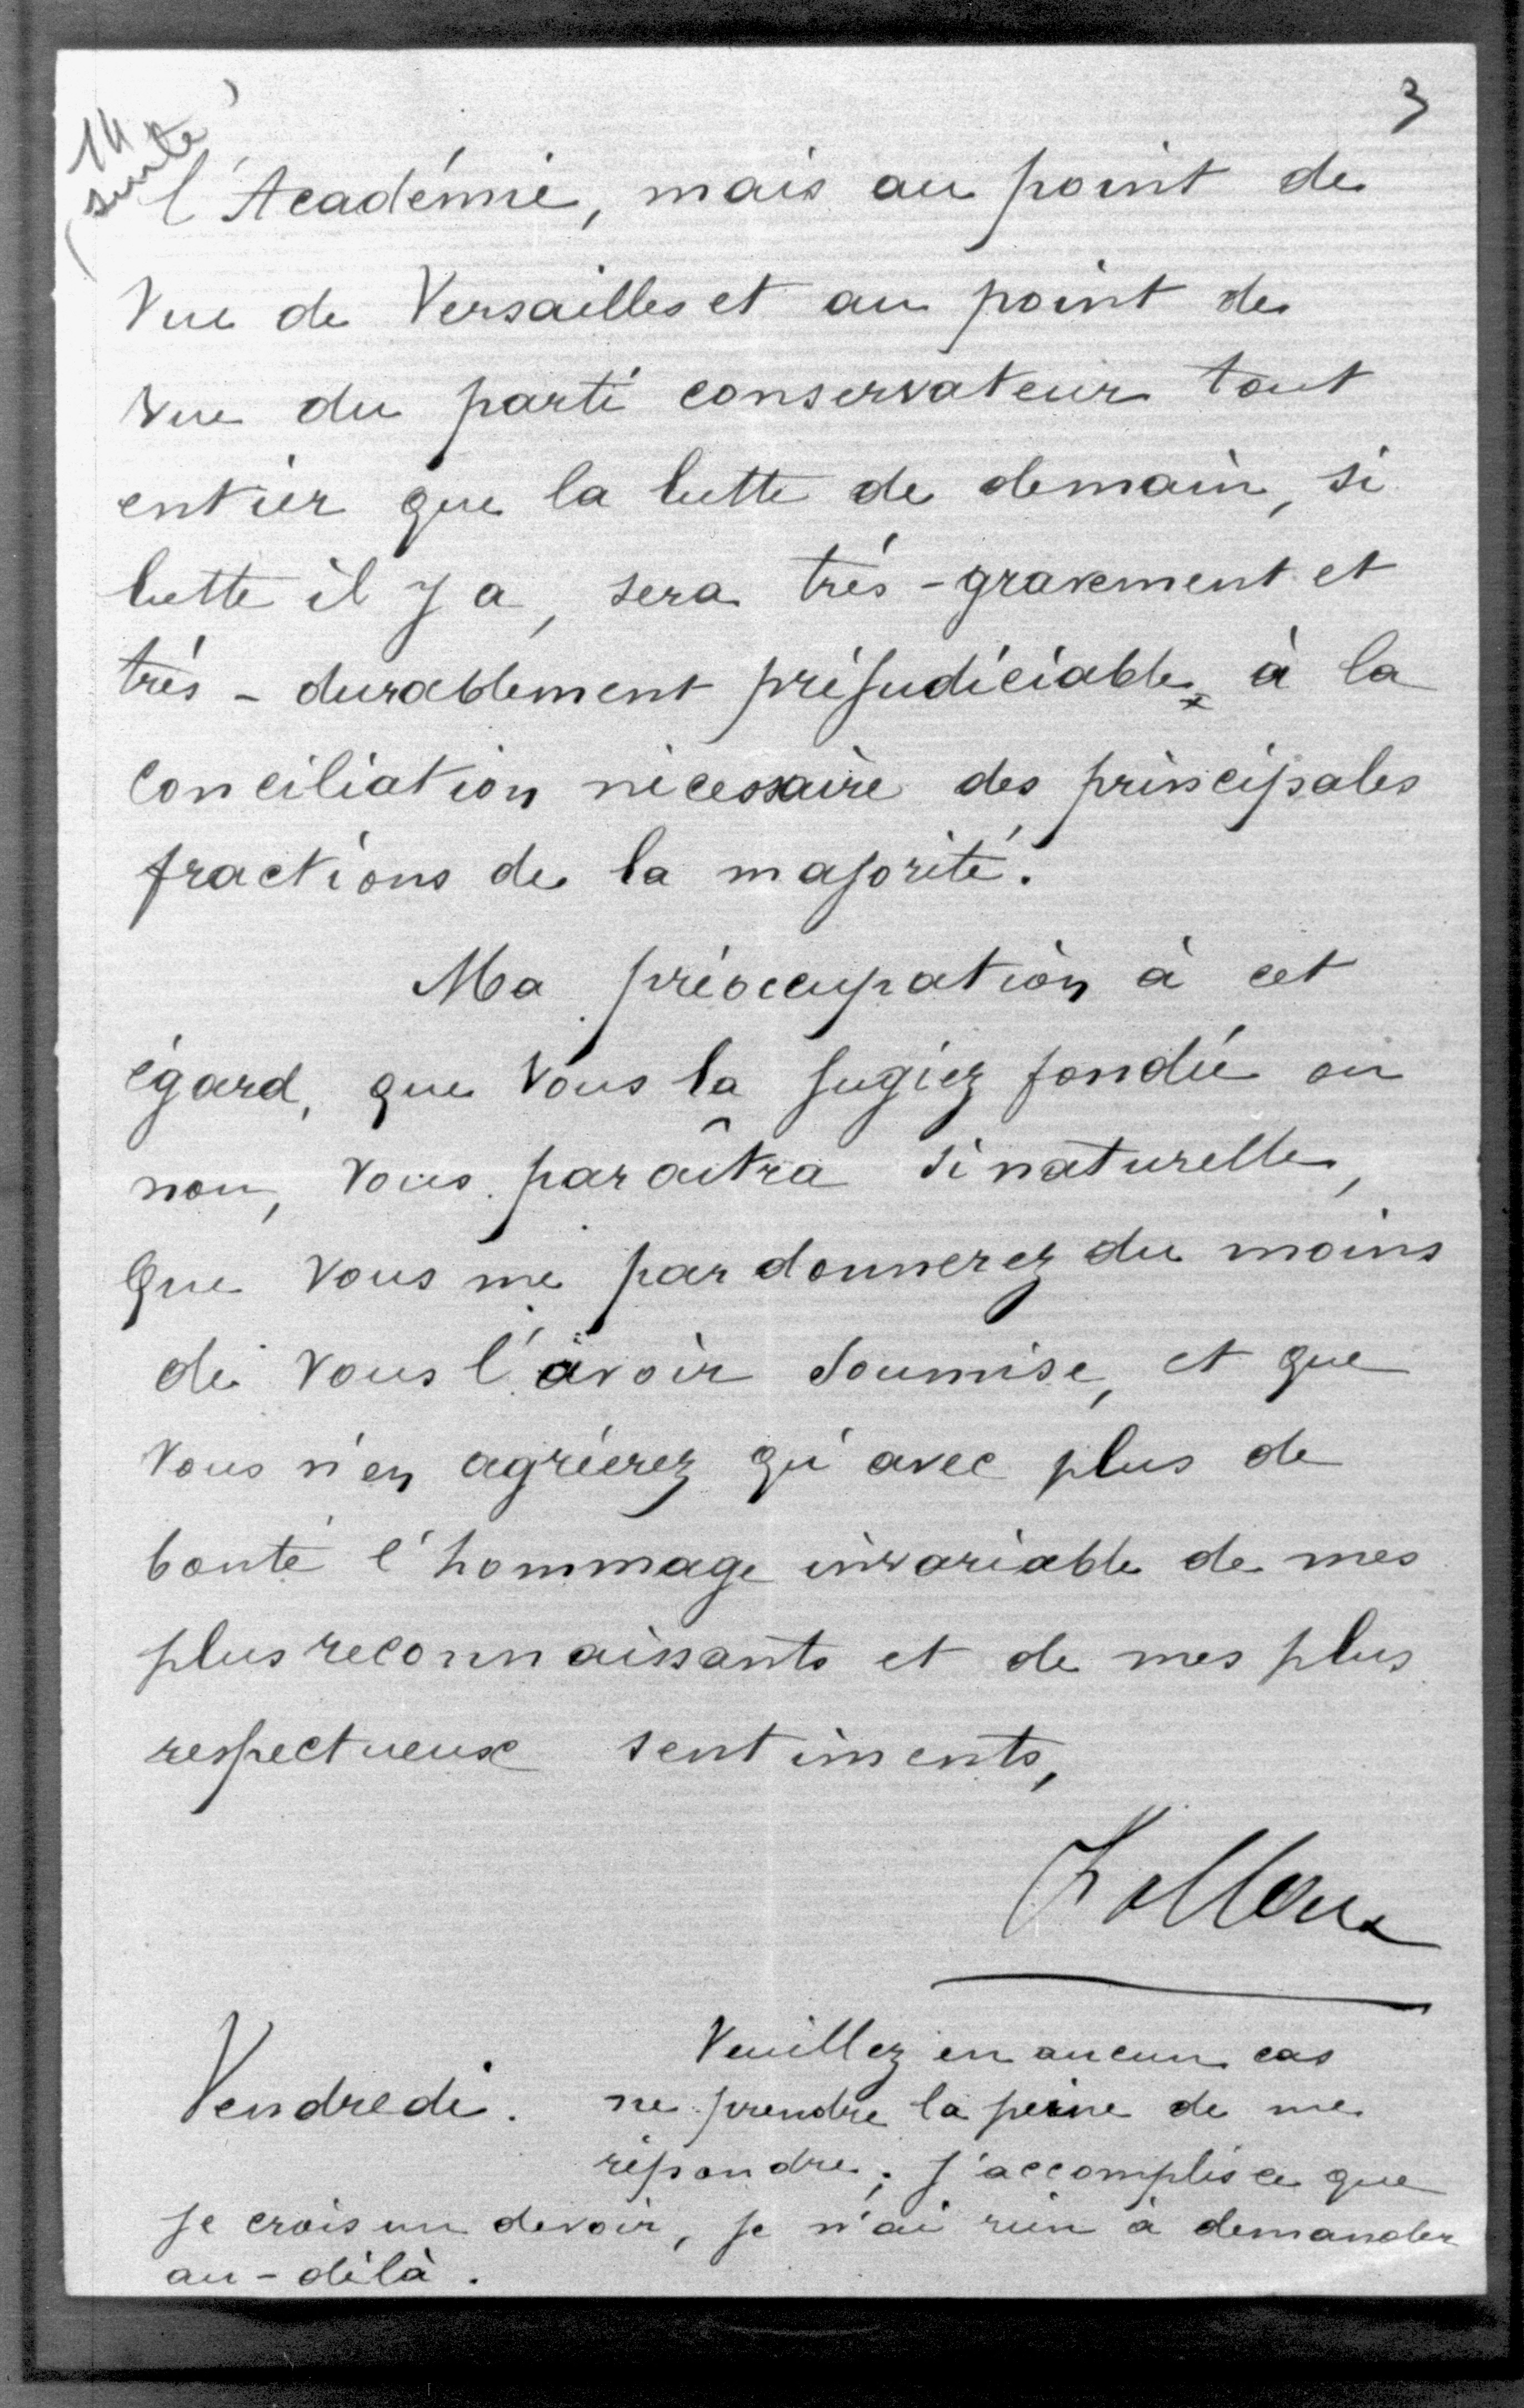 3
14
(suite)
l'Académie, mais au point de
vue de Versailles et au point de
vue du parti conservateur tout
entier que la lutte de demain, si
lutte il y a, sera très-gravement et
très-durablement préjudiciable à la
conciliation nécessaire des principales
fractions de la majorité.
Ma préoccupation à cet
égard, que vous la jugiez fondée ou
non, vous paraîtra si naturelle,
que vous me pardonnerez du moins
de vous l'avoir soumise, et que
vous n'en agréerez qu'avec plus de
bonté l'hommage invariable de mes
plus reconnaissants et de mes plus
respectueux sentiments,
Falloux
Vendredi.
Veuillez en aucun cas
ne prendre la peine de me
répondre; j'accomplis ce que
je crois un devoir, je n'ai rien à demander
au-delà.